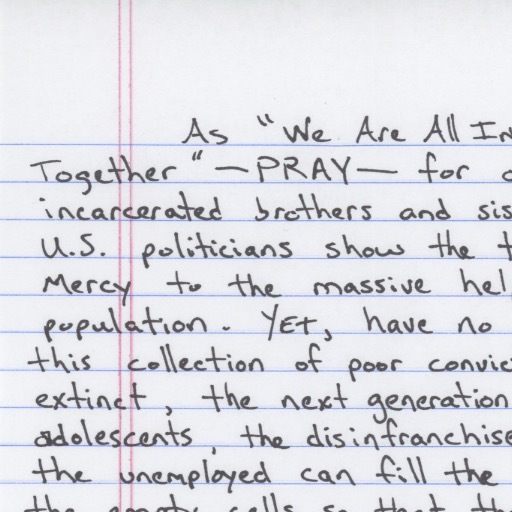 As "We Are All In
Together" — PRAY — for
incarcerated brothers and sis
U.S. politicians show the
Mercy to the massive hel
population. YEt, have no
this collection of poor convic
extinct, the next generation
adolescents, the disinfranchise
the unemployed can fill the
the empty cells so that th